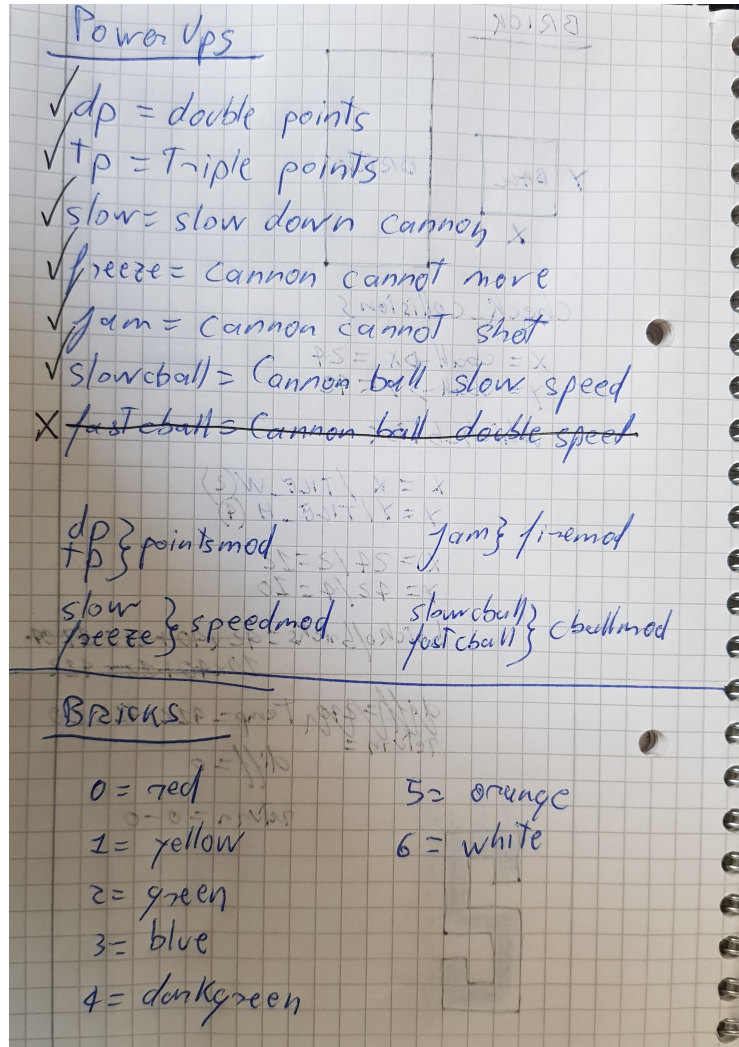 Power Ups
✓ dp = double points
✓ tp = Triple points
✓ slow = slow down cannon
✓ freeze = cannon cannot move
✓ jam = cannon cannot shot
✓ slowcball = Cannon ball slow speed
X fastcball = Cannon ball double speed
dp
tp } pointsmod
jam } firemod
slow
freeze } speedmod
slowcball
fastcball } cballmod
BRICKS
0 = red
1 = yellow
2 = green
3 = blue
4 = darkgreen
5 = orange
6 = white
BRICK